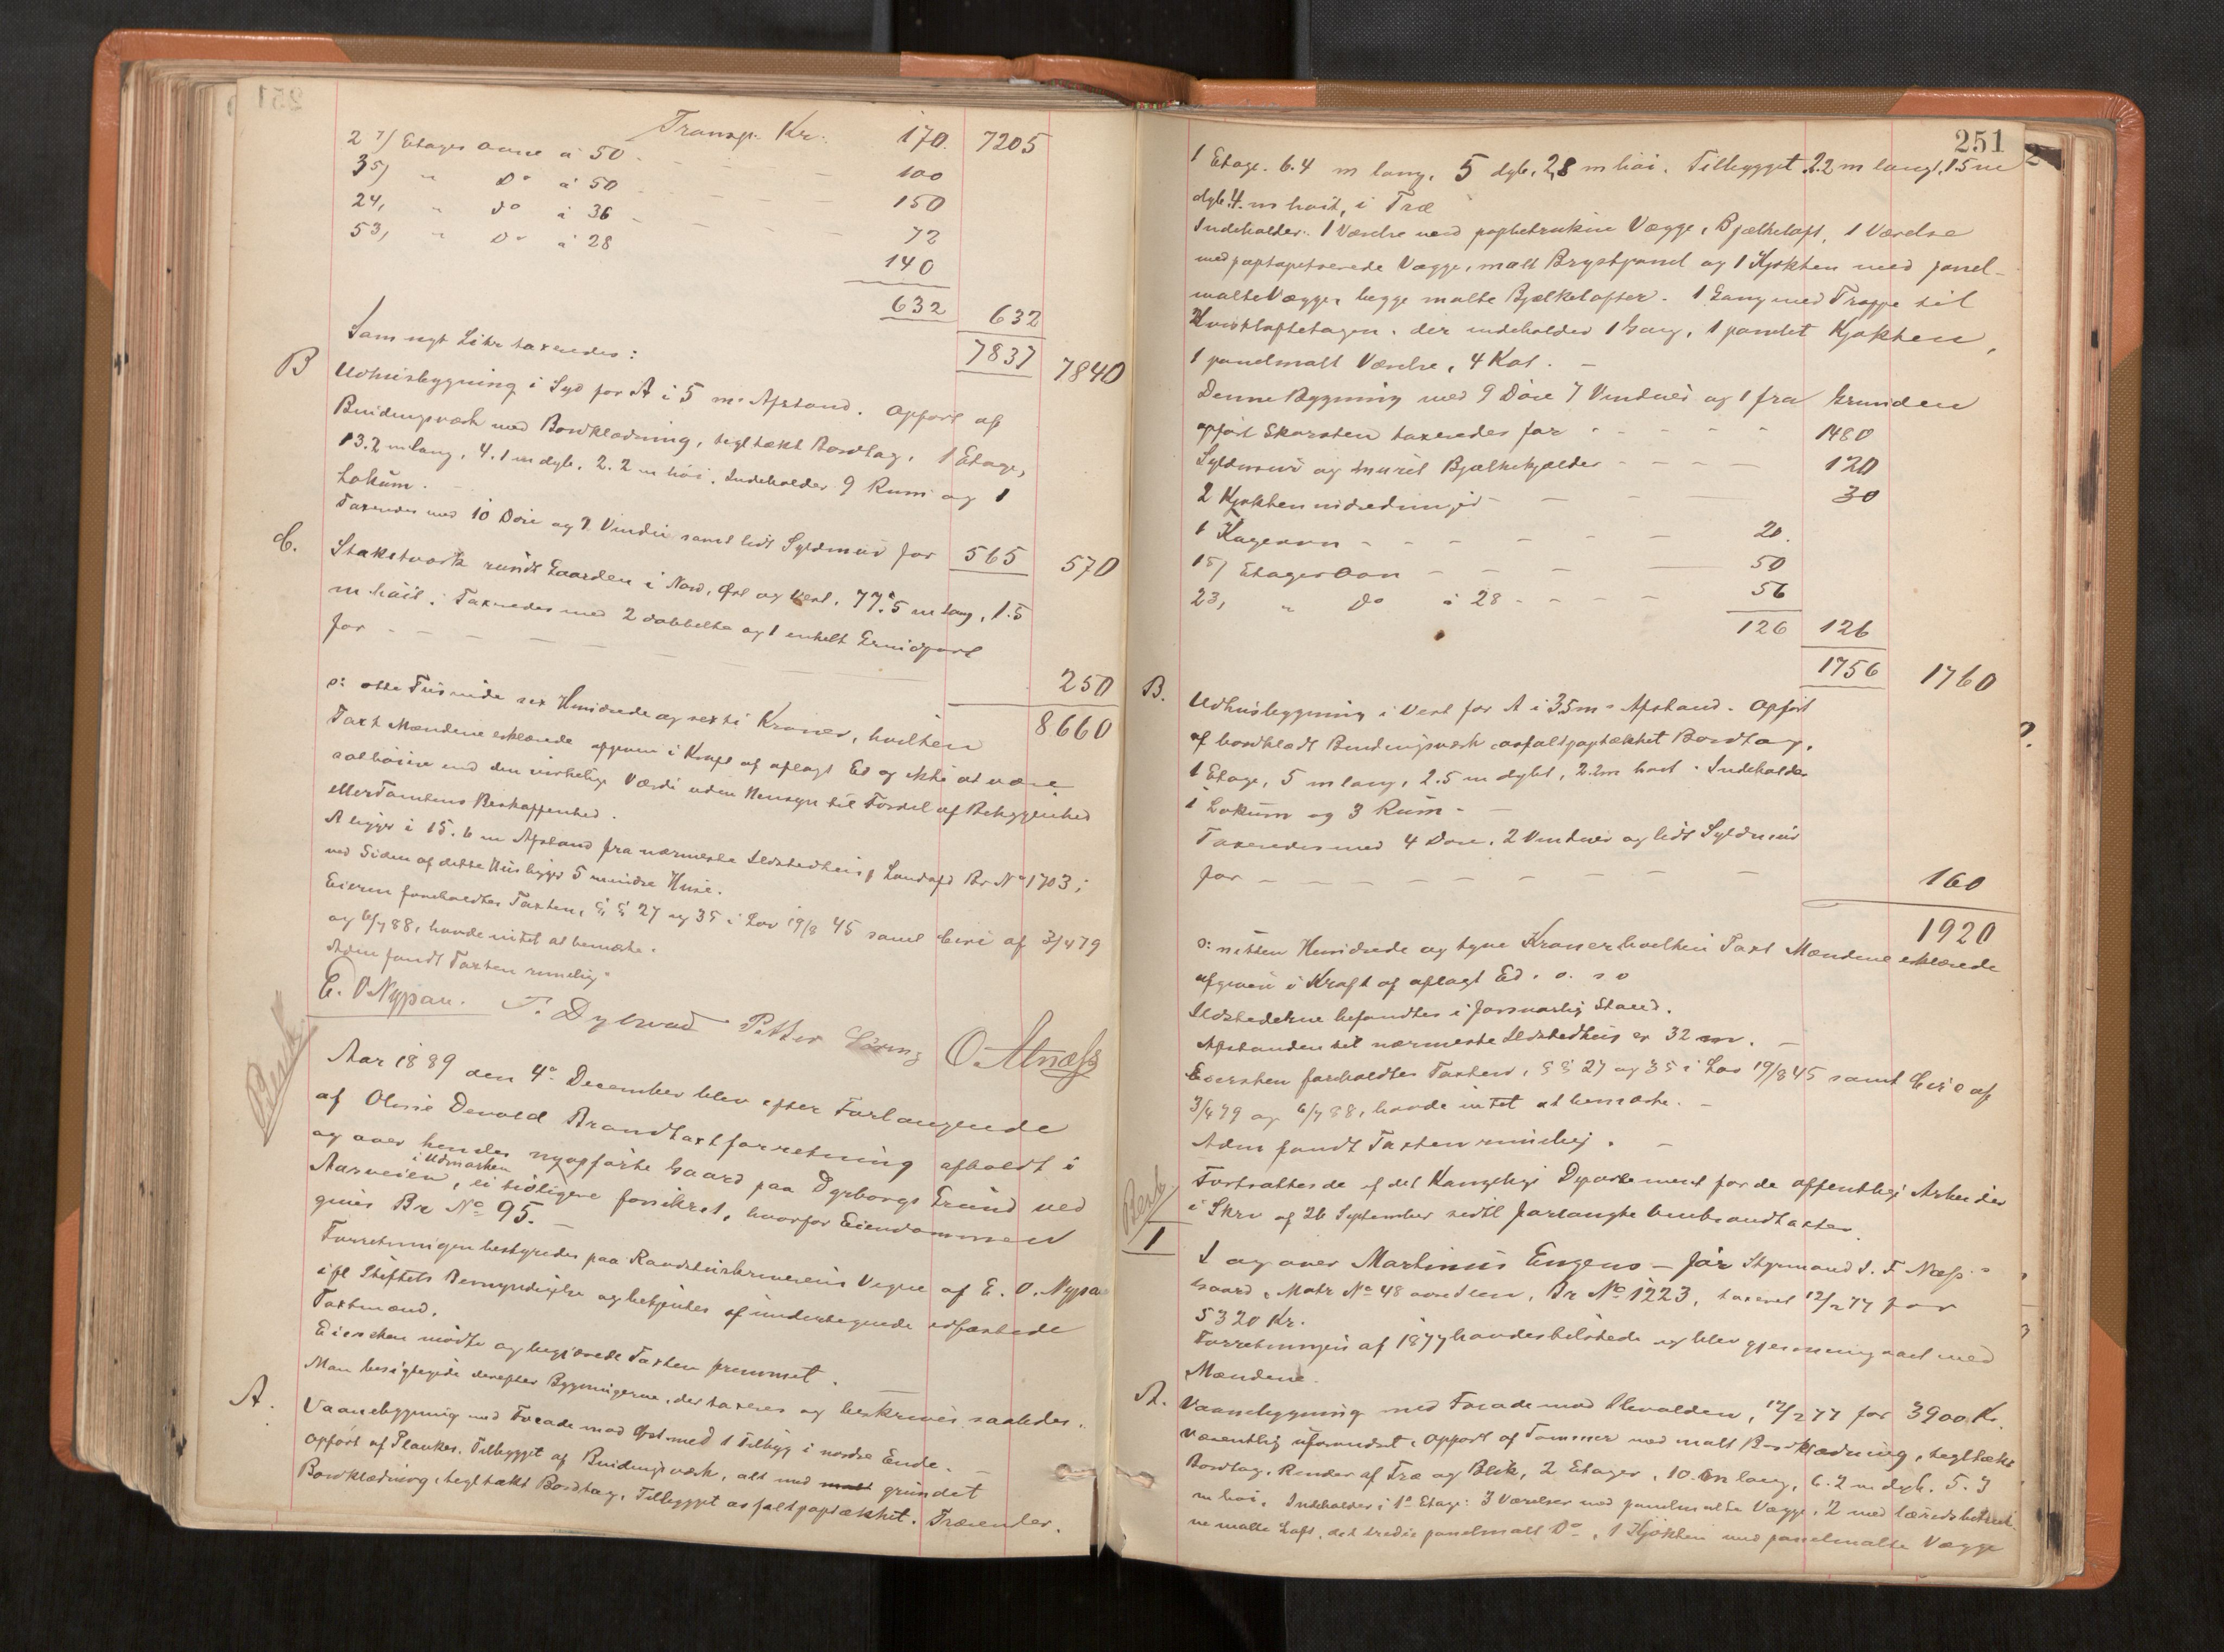 Transp. Kr. 170. 7205
2 7/ Etages Ovne a 50 - - - 100
3 5/ " Do a 50 - - - 150
2 4, " do a 36 - - - 72
5 3, " Do a 28 140
632 632
7837 7840
Som nyt Litr taxeredes:
B Udhusbygning i Syd for A i 5 m. Afstand. Opført af
Bindingsværk med Bordklædning, tegltækt Bordtag. 1 Etage,
13.2 m lang, 4.1 m dyb, 2.2 m høi. Indeholder 9 Rum og 1
Lokum.
Taxeredes med 10 Døre og 9 Vinduer samt lidt Syldmur for 565 570
C. Staketværk rundt Gaarden i Nord, Øst og Vest, 77.5 m lang, 1.5
m høit. Taxeredes med 2 dobbelte og 1 enkelt Grindport
for - - - - - 250
8660
o: otte Tusinde sex Hundrede og sexti Kroner, hvilken
Taxt Mændene erklærede afgiven i Kraft af aflagt Ed og ikke at være
sat høiere end den virkelige Værdi uden Hensyn til Fordel af Beliggenhed
eller Tomtens Beskaffenhed.
A ligger i 15.6 m Afstand fra nærmeste Ildstedhus, Br No 1703;
ved Siden af dette Hus ligger 5 mindre Huse.
Eieren foreholdtes Taxten, §§ 27 og 35 i Lov 19/8 45 samt Circ af 3/4 79
og 6/7 88, havde intet at bemærke.
Adm fandt Taxten rimelig.
E. O Nypan. T. Dybwad Petter O. Alnæss
Besk
Aar 1889 den 4de December blev efter Forlangende
af Oline Devold Brandtaxtforretning afholdt i
og over hendes nyopførte Gaard paa Dyrborgs Grund ved
i Udmarken
Aasveien, ei tidligere forsikret, hvorfor Eiendommen
gives Br No 95. -
Forretningen bestyredes paa Raadstueskriverens Vegne af E. O. Nypan
ifl Stiftets Bemyndigelse og betjentes af undertegnede edfæstede
Taxtmænd.
Eiersken mødte og begjærede Taxten fremmet.
Man besigtigede derefter Bygningerne, der taxeres og beskrives saaledes.
A. Vaanebygning med Facade mod Øst med 1 Tilbyg i nordre Ende. -
Opført af Planker. Tilbygget af Bindingsværk, alt med malt grundet
Bordklædning, tegltækt Bordtag, Tilbygget asfaltpaptækket. Trærender.
251
1 Etage. 6.4 m lang, 5 dyb, 2,8 m høi. Tilbygget 2.2 m langt, 1.5 m
dyb .4. m høit, i Træ
Indeholder: 1 Værelse med papbetrukne Vægge, Bjælkeloft, 1 Værelse
med paptapetserede Vægge, malt Brystpanel og 1 Kjøkken med panel-
malte Vægge, begge malte Bjælkelofter. 1 Gang med Trappe til
Kvistloftetagen, der indeholder 1 Gang, 1 panelet Kjøkken,
1 panelmalt Værelse, 4 Kot. -
Denne Bygning med 9 Døre 7 Vinduer og 1 fra Grunden
opført Skorsten taxeredes for - - - - - 1480
Syldmur og muret Bjælkekjælder - - - - 120
2 Kjøkkenindredninger - - - 30
1 Kageovn - - - - - - 20.
1 5/ Etagesovn - - - - 50
2 3, " do a 28 - - - - 56
126 126
1756 1760
B. Udhusbygning i Vest for A i 3.5 m. Afstand. Opført
af bordklædt Bindingsværk, asfaltpaptækket Bordtag.
1 Etage, 5 m lang, 2.5 m dybt, 2.2m høit. Indeholder
1 Lokum og 3 Rum. -
Taxeredes med 4 Døre, 2 Vinduer og lidt Syldmur
for - - - - - - - - - 160
1920
o: nitten Hundrede og tyve Kroner hvilken Taxt Mændene erklærede
afgiven i Kraft af aflagt Ed. o. s o
Ildstederne befandtes i forsvarlig Stand.
Afstanden til nærmeste Ildstedhus er 32 m. -
Eiersken foreholdtes Taxten, §§ 27 og 35 i Lov 19/8 45 samt Circ af
3/4 79 og 6/7 88, havde intet at bemærke. -
Adm fandt Taxten rimelig. -
Besk
Fortsattes de af det Kongelige Departement for de offentlige Arbeider
i Skr af 26 September sidstl forlangte Ombrandtaxter.
1 I og over Martinus Engens - før Styrmand S. F. Næss's
Gaard, Matr No 48 Br No 1223, taxeret 12/2 77 for
5320 Kr.
Forretningen af 1877 havdes tilstede og blev gjennemgaaet med
Mændene.
A. Vaanebygning med Facade mod Ilevolden, 12/2 77 for 3900 Kr.
væsentlig uforandret. Opført af Tømmer med malt Bordklædning, tegltækt
Bordtag, Render af Træ og Blik, 2 Etager, 10. m lang, 6.2 m dyb. 5.3
m høi. Indeholder i 1e Etage: 3 Værelser med panelmalte Vægge, 2 med lærredsbetruk-
ne malte Loft, det tredie panelmalt Do, 1 Kjøkken med panelmalte Vægge